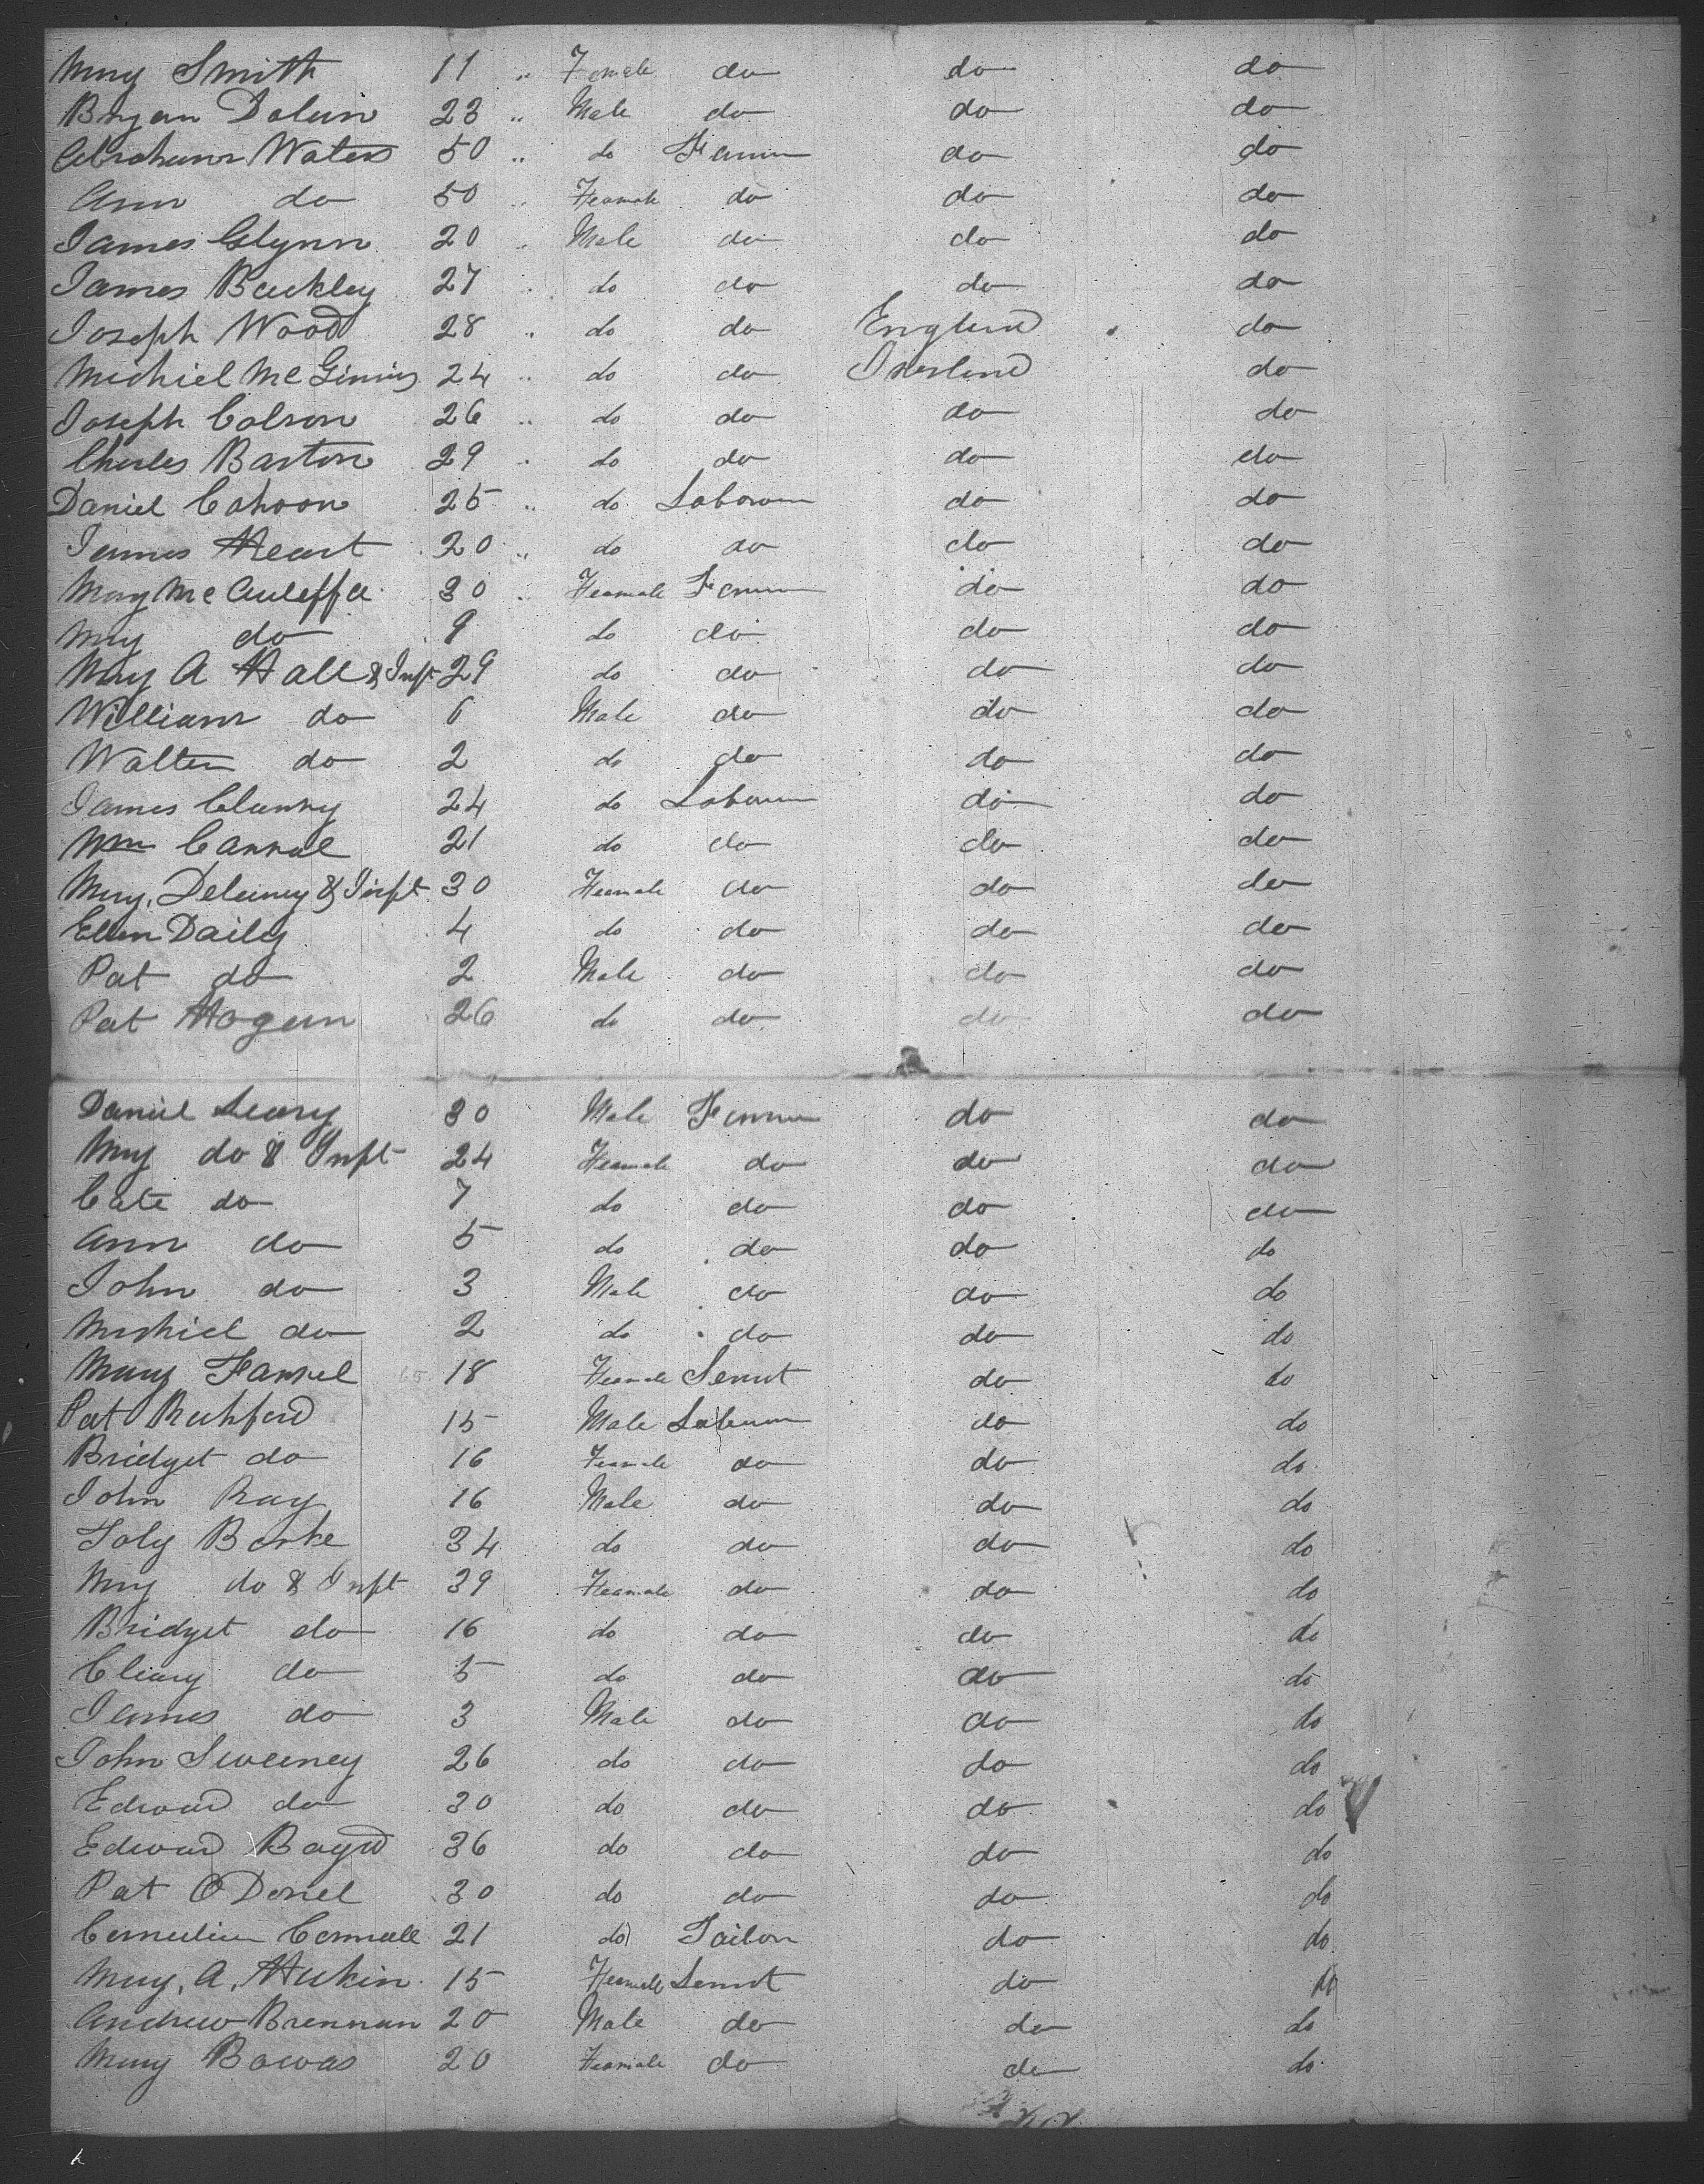 Mary Smith 11 " Female do do do
Bryan Dolein 23 " Male do do do
Abraham Waters 50 " do Farmr do do
Ann do 50 " Feamale do do do
James Glynn 20 " Male do do do
James Buckley 27 " do do do do
Joseph Wood 28 " do do England do
Michiel McGinnis 24 " do do Ireland do
Joseph Colson 26 " do do do do
Charles Barton 29 " do do do do
Daniel Cahoon 25 " do Laborur do do
James Heart 20 " do do do do
Mary McAuleffe 30 " Feamale Farmr do do
Mary do 9 do do do do
Mary A Hall & Inft 29 do do do do
William do 6 Male do do do
Walter do 2 do do do do
James Clunky 24 do Laborur do do
Wm Carrol 21 do do do do
Mary Delaney & Inft 30 Feamale do do do
Ellen Daily 4 do do do do
Pat do 2 Male do do do
Pat Hogan 26 do do do do
Daniel Leary 30 Male Farmr do do
Mary do & Inft 24 Feamale do do do
Cate do 7 do do do do
Ann do 5 do do do do
John do 3 Male do do do
Michiel do 2 do do do do
Mary Farrel 18 Feamale Servnt do do
Pat Ruhford 15 Male Laborur do do
Bridget do 16 Feamale do do do
John Ray 16 Male do do do
Foly Borke 34 do do do do
Mary do & Inft 39 Feamale do do do
Bridget do 16 do do do do
Cliary do 5 do do do do
James do 3 Male do do do
John Sweeney 26 do do do do
Edward do 30 do do do do
Edward Boyd 36 do do do do
Pat O Donel 30 do do do do
Cornelius Connell 21 do Tailor do do
Mary, A, Hukin 15 Feamale Servnt do do
Andrew Brennan 20 Male do do do
Mary Bowas 20 Feamale do do do